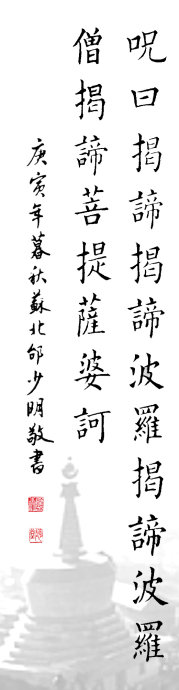 呪曰揭諦揭諦波羅揭諦波羅
僧揭諦菩提薩婆訶
庚寅年暮秋蘇北邰少明敬書